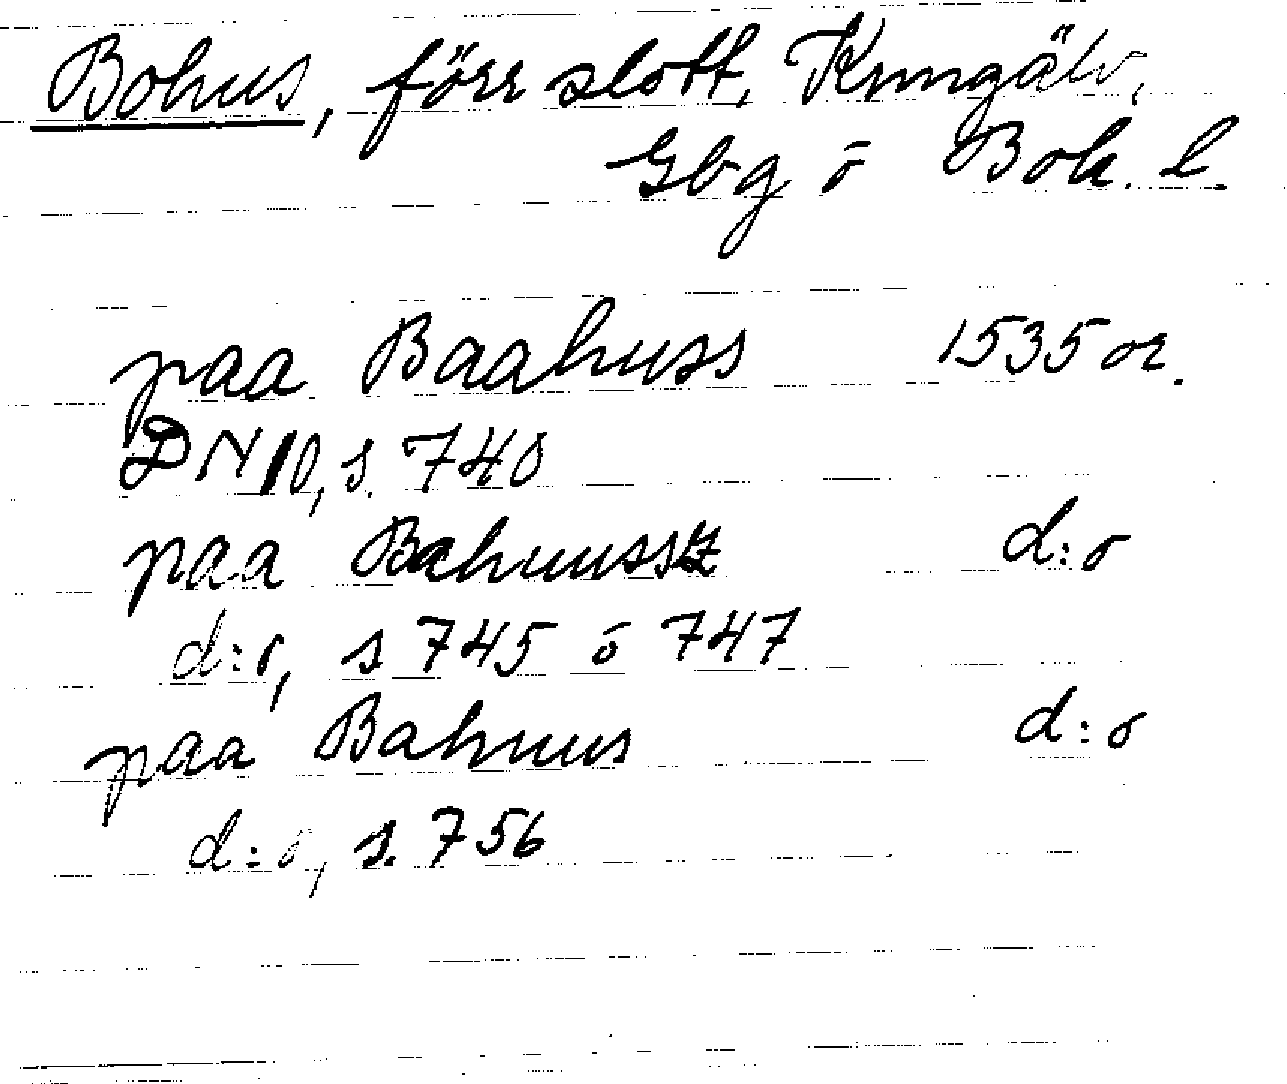 Bohus, förr slott, Kungälv,
Gbg o Boh. l.
paa Baahuss 1535 or.
DN 10, s. 740
paa Bahuussz d:o
d:o, s 745 o 747
paa Bahuus d:o
d:o, s. 756